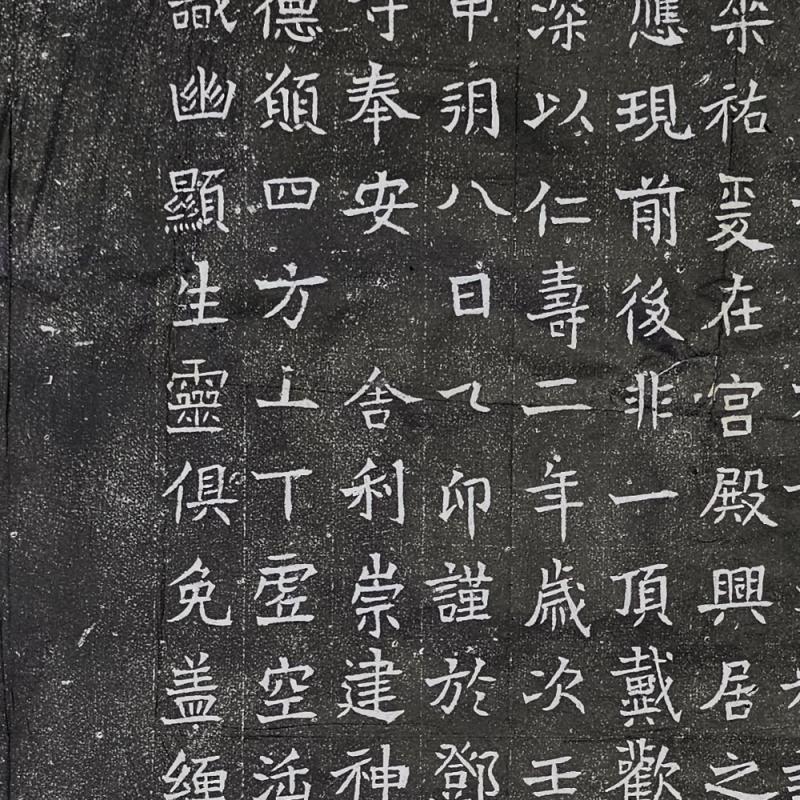 祐爰在宮殿興居之
應現前後非一頂戴歡
深以仁壽二年歲次壬
申朔八日乙卯謹於鄧
寺奉安　舍利崇建神
德願四方上下虛空法
識幽顯生靈俱免盖纏